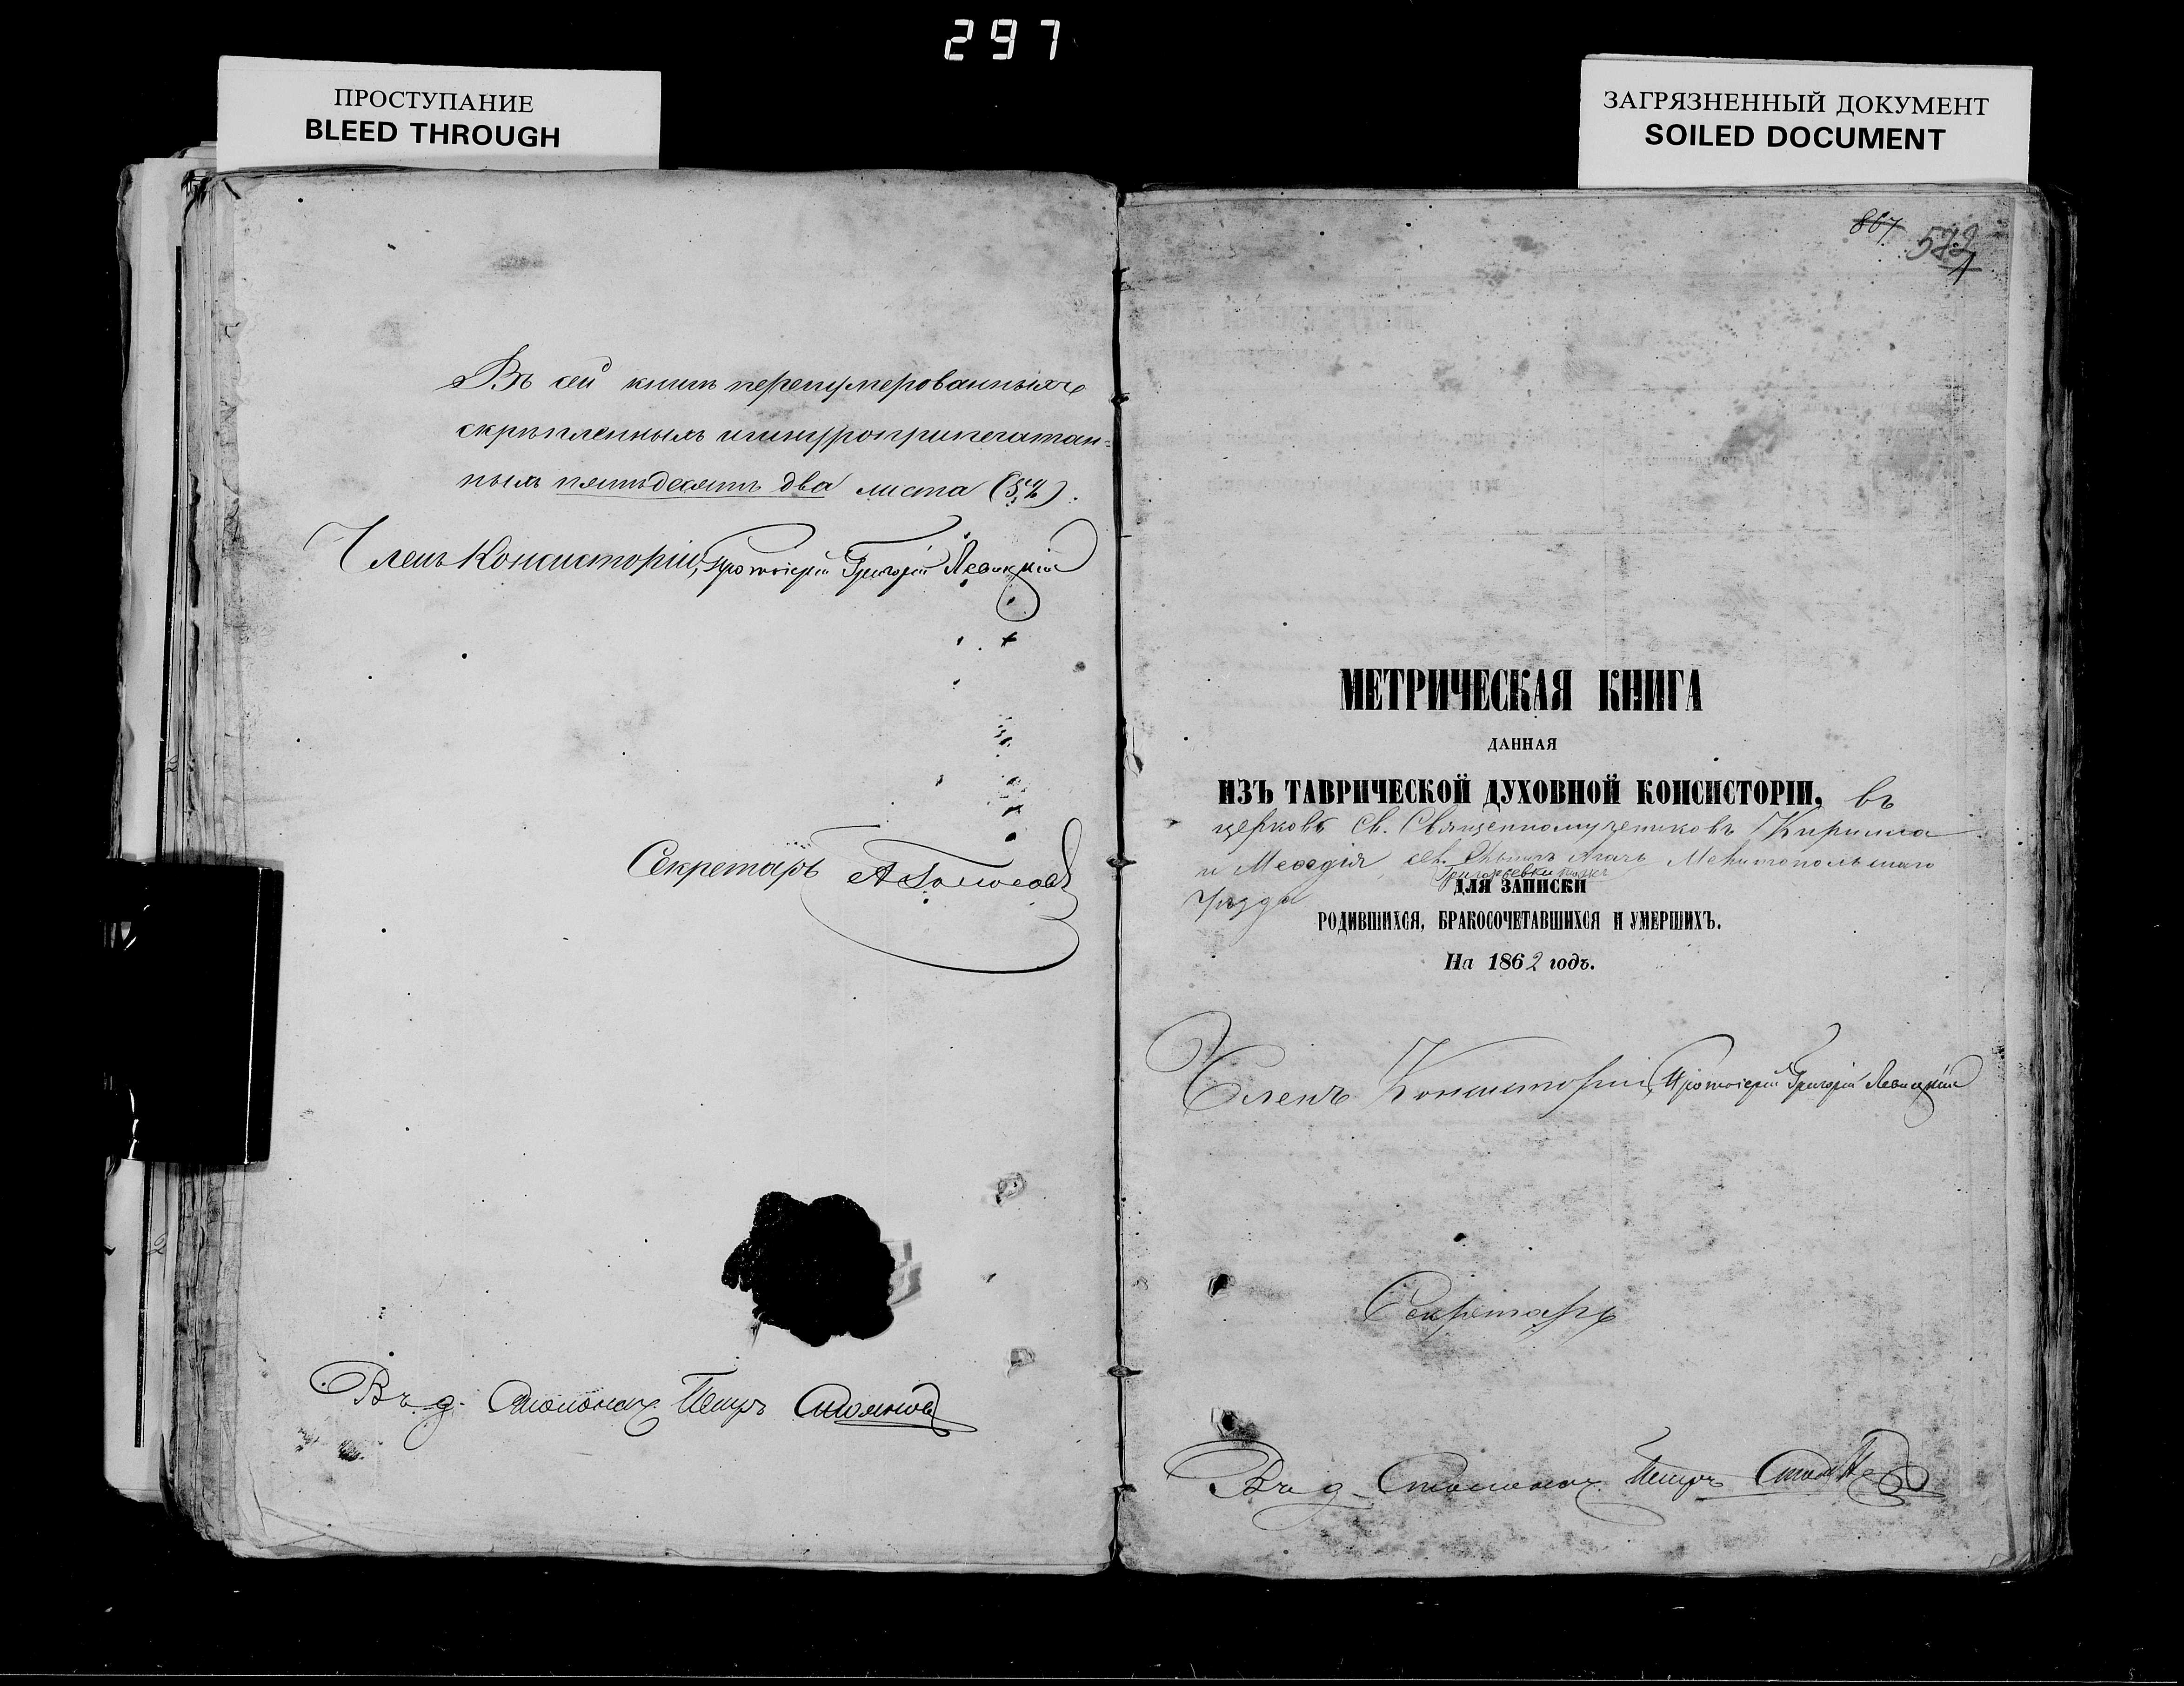 297
ПРОСТУПАНИЕ
BLEED THROUGH
ЗАГРЯЗНЕННЫЙ ДОКУМЕНТ
SOILED DOCUMENT
Въ сей книгѣ перенумерованныхъ
скрѣпленныхъ и шнуроприпечатан-
ныхъ пятьдесятъ два листа (52).
Членъ Консисторіи, Протоіерей Григорій Левицкій
Секретарь
Петръ
867
572
МЕТРИЧЕСКАЯ КНИГА
ДАННАЯ
ИЗЪ ТАВРИЧЕСКОЙ ДУХОВНОЙ КОНСИСТОРІИ, въ
церковь Св. Священномучениковъ Кирилла
и Меѳодія, сел. Агачъ Мелитопольскаго
Григорьевки тожъ
Уѣзда
ДЛЯ ЗАПИСКИ
РОДИВШИХСЯ, БРАКОСОЧЕТАВШИХСЯ И УМЕРШИХЪ.
На 1862 годъ.
Членъ Консисторіи, Протоіерей Григорій Левицкій
Секретарь
Петръ